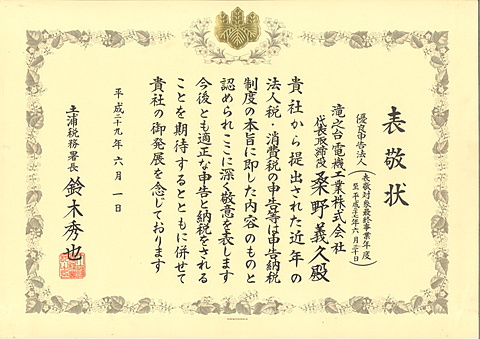 表敬状
優良申告法人
(表敬対象最終事業年度
至 平成
年六月三十日)
滝之台電機工業株式会社
代表取締役 桑野義久殿
貴社から提出された近年の
法人税・消費税の申告等は申告納税
制度の本旨に即した内容のものと
認められここに深く敬意を表します
今後とも適正な申告と納税をされる
ことを期待するとともに併せて
貴社の御発展を念じております
平成二十九年六月一日
土浦税務署長 鈴木秀也